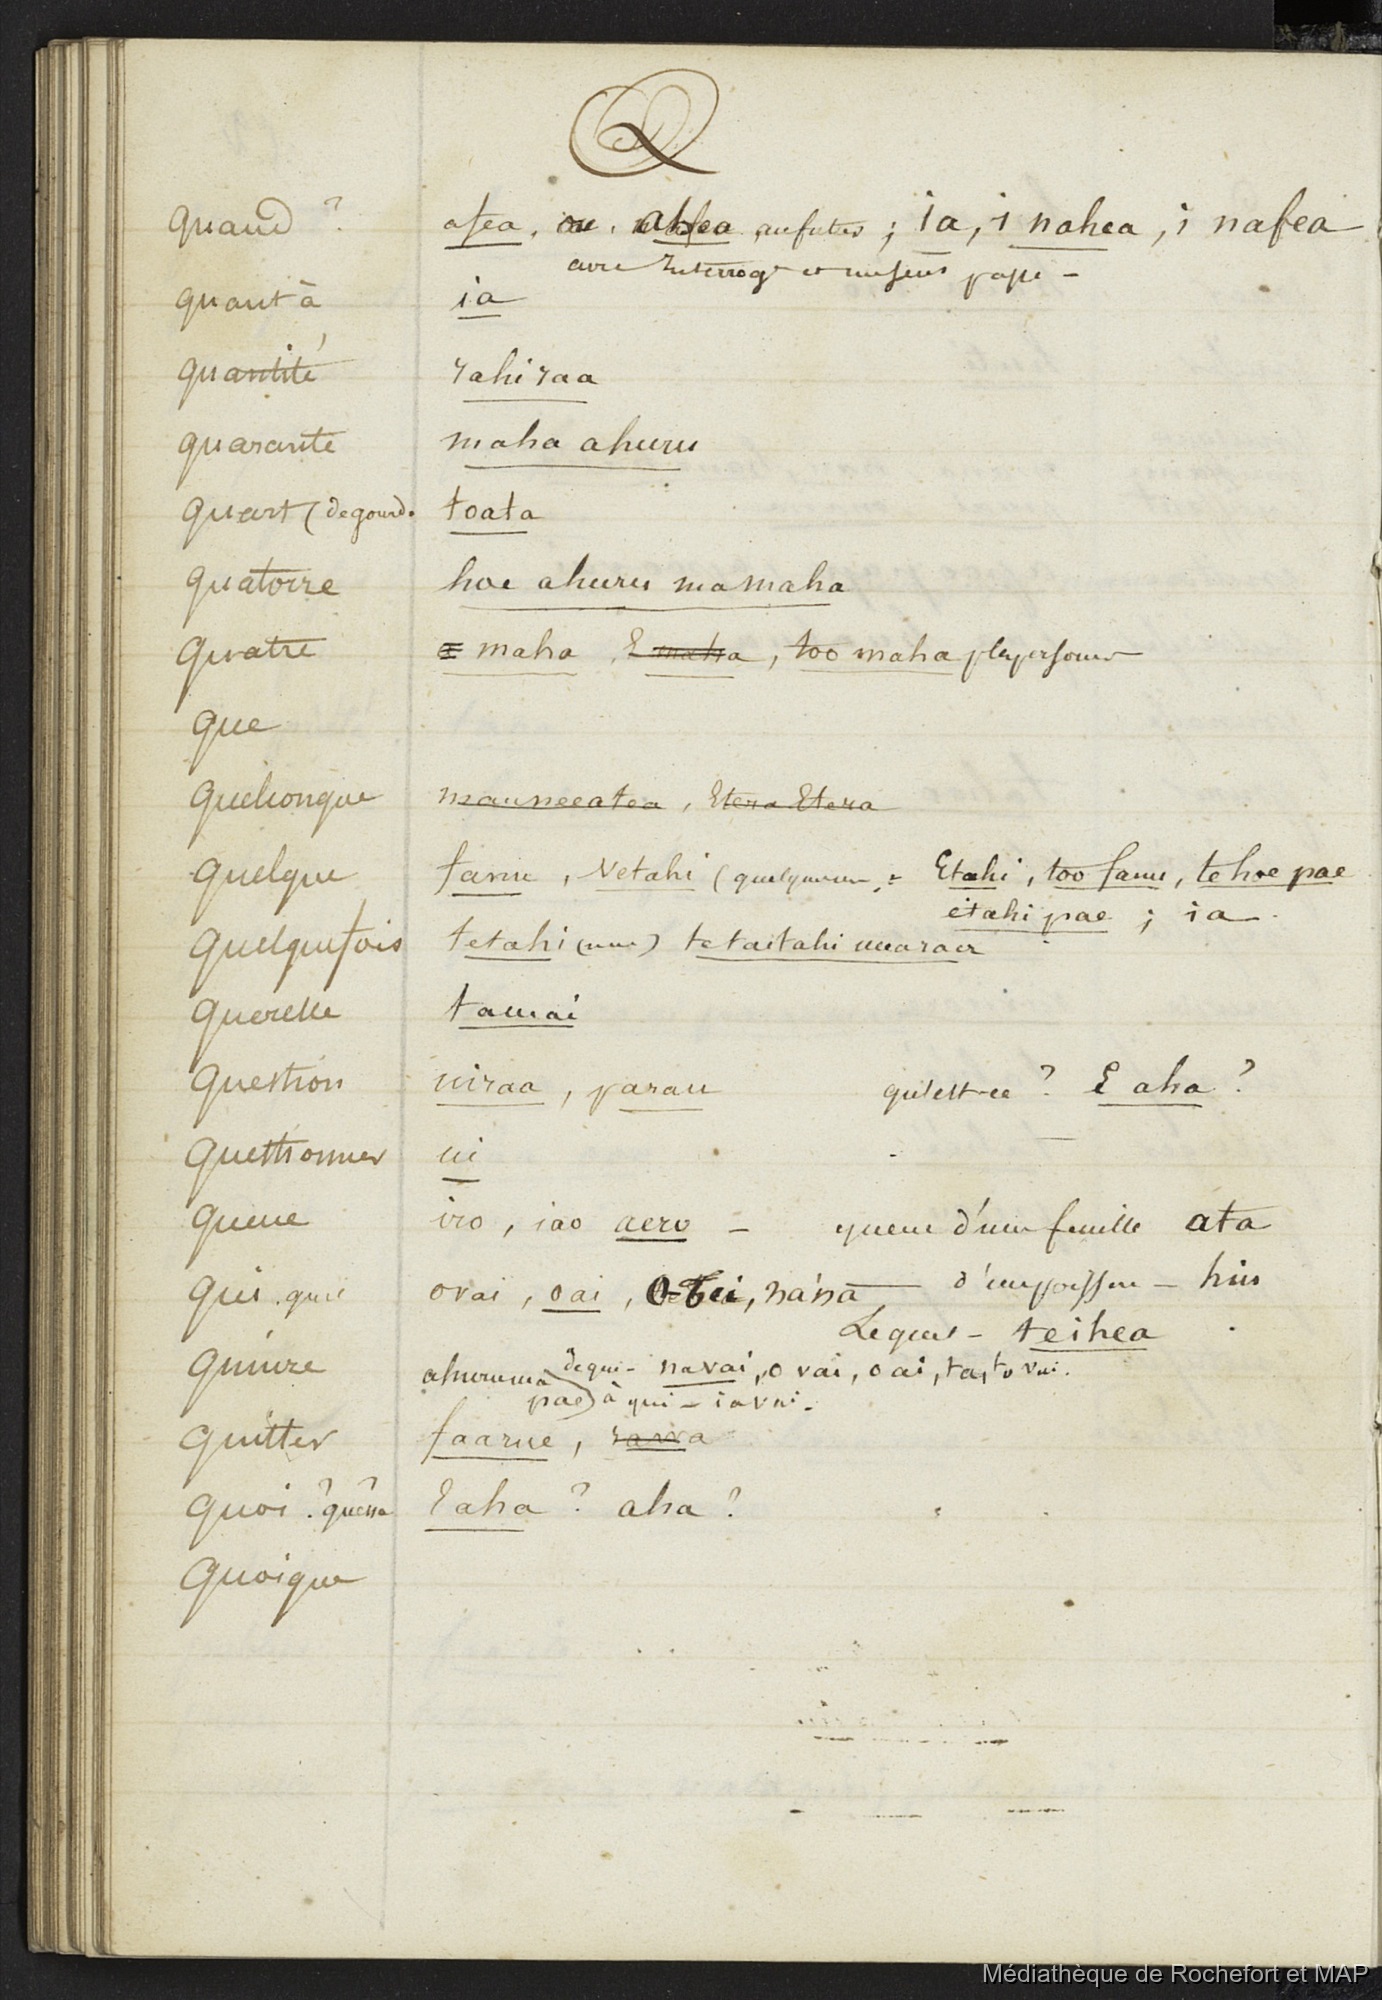 Q
quand ? afea, ou, ahea au futur ; ia, i nahea, i nafea
avec interrog et un sens passé -
quant à ia
quantité rahiraa
quarante maha ahuru
quart (de gourd. toata
quatorze hoe ahuru mamaha
quatre E maha, E maha, too maha pr les personnes
que
quelconque Etera Etera
quelque fanu, Vetahi (quelqu'un, - Etahi, too fanu, te hoe pae
etahi pae ; ia
quelquefois tetahi (une) tetaitahi
querelle tamai
question uiraa, parau qu'est-ce ? E aha ?
questionner ui
queue iro, iao aero - queue d'une feuille ata
qui ovai, oai, na'na d'un poisson - hiu
Lequel - teihea
quinze ahuruma pae) de qui - navai, o vai, o ai, ta, to vai.
à qui - iavai.
quitter faarue, rava
quoi ? Eaha ? aha ?
quoique
Médiathèque de Rochefort et MAP